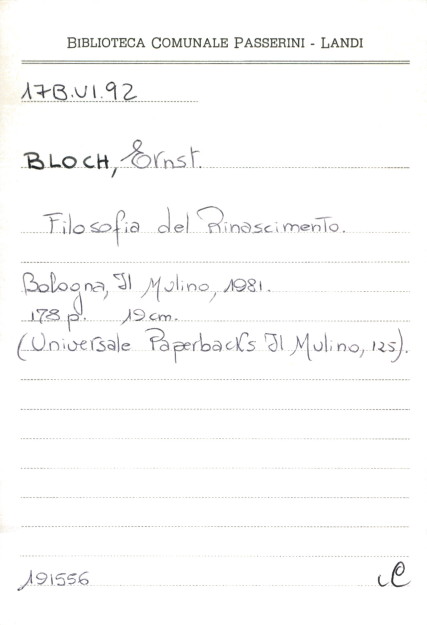 BIBLIOTECA COMUNALE PASSERINI - LANDI
17B.VI.92
BLOCH, Ernst.
Filosofia del Rinascimento.
Bologna, Il Mulino, 1981.
178 p. 19 cm.
(Universale Paperbacks Il Mulino, 125).
191556